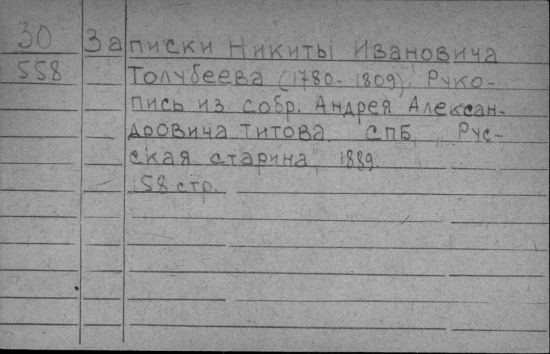 30 Записки Никиты Ивановича
558 Толубеева (1780-1809). Руко-
пись из собр. Андрея Алексан-
дровича Титова. СПБ, „Рус-
ская старина", 1889.
58 стр.